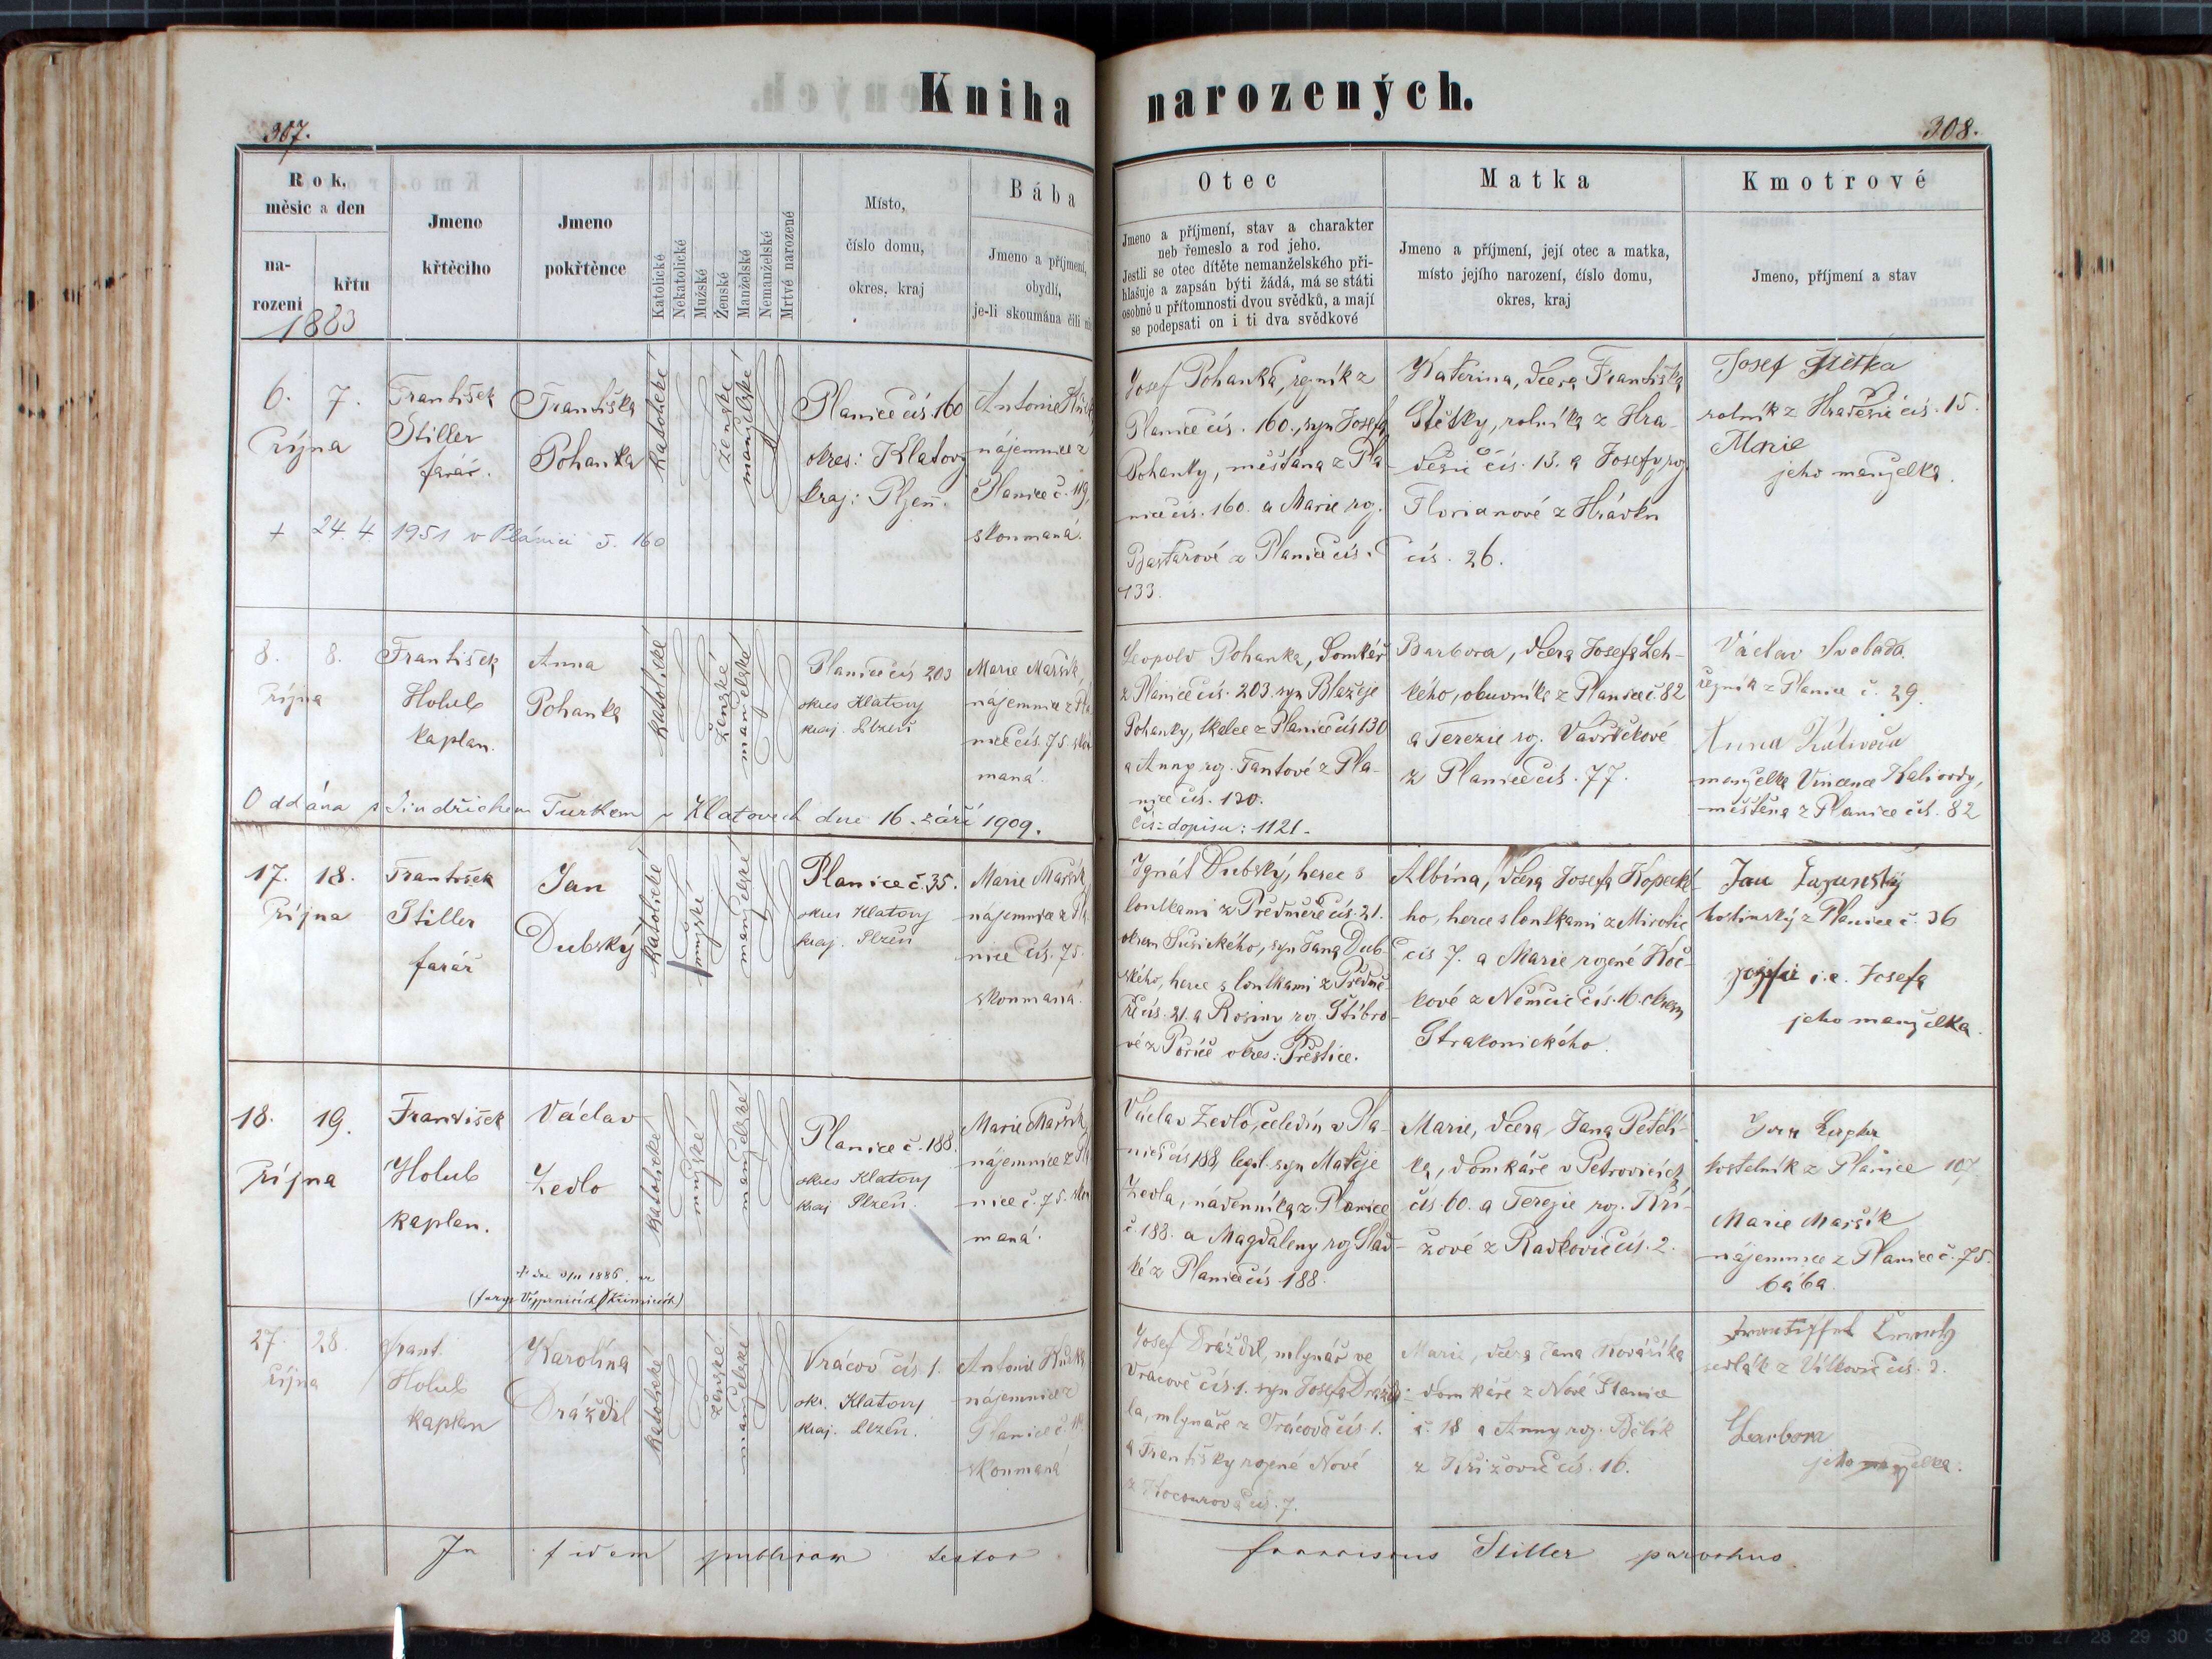 Kniha narozených.
307.
308.
Rok, měsic a den
narození
křtu
1883
Jmeno křtěciho
Jmeno pokřtěnce
Katolické
Nekatolické
Mužské
Ženské
Manželské
Nemanželské
Mrtvé narozené
Místo,
číslo domu,
okres, kraj
Bába
Jmeno a příjmení,
obydlí,
je-li skoumána čili
Otec
Jmeno a příjmení, stav a charakter
neb řemeslo a rod jeho.
Jestli se otec dítěte nemanželského při-
hlašuje a zapsán býti žádá, má se státi
osobně u přítomnosti dvou svědků, a mají
se podepsati on i ti dva svědkové
Matka
Jmeno a příjmení, její otec a matka,
místo jejího narození, číslo domu,
okres, kraj
Kmotrové
Jmeno, příjmení a stav
6. 7.
října
František
Stiller
farář.
Františka
Pohanka
katolické
ženské
manželské
Planice čís. 160
okres: Klatovy
kraj: Plzeň.
Antonie
nájemnice z
Planice č. 119,
skoumaná.
Josef Pohanka, řezník z
Planice čís. 160., syn Josefa
Pohanky, měšťana z Pla-
nice čís. 160. a Marie roz.
z Planice čís.
133.
Kateřina, dcera Františka
Štětky, rolníka z Hra-
děšic čís. 13. a Josefy roz.
Florianové z Hrádku
čís. 26.
Josef Štětka
rolník z Hradešic čís. 15.
Marie
jeho manželka.
+ 24. 4. 1951 v Plánici č. 160
8. 8.
října
František
Holub
kaplan.
Anna
Pohanka
katolické
ženské
manželské
Planice čís 203
okres Klatovy
kraj. Plzeň
Marie Maršík,
nájemnice z Pla
nice čís. 75. skou
maná.
Leopold Pohanka, Domkář
z Planice čís. 203. syn Blažeje
Pohanky, tkalce z Planice čís 130
a Anny roz. Tantové z Pla-
nice čís. 130.
Čís. dopisu: 1121.
Barbora, dcera Josefa Leh-
kého, obuvníka z Planice č 82
a Terezie roz. Vavřičkové
z Planice čís. 77.
Václav Svoboda
řezník z Planice č. 29.
Anna
manželka Vincence Kalivody,
měšťana z Planice čís. 82
Oddána s Jindřichem Turkem v Klatovech dne 16. září 1909.
17. 18.
října
František
Stiller
farář
Jan
Dubský
katolické
mužské
manželské
Planice č. 35.
okres Klatovy
kraj. Plzeň
Marie Maršík,
nájemnice z Pla
nice čís. 75.
skoumaná.
Ignát Dubský, herec s
loutkami z Předměře čís. 21.
okresu Sušického, syn Jana Dub-
ského, herce s loutkami z Předmě-
ře čís. 21. a Rosiny roz. Stíbro-
vé z Poříčí okres: Přeštice.
Albína, dcera Josefa Kopecké-
ho, herce s loutkami z Mirotic
čís 7. a Marie rozené Koč-
kové z Němčic čís. 16. okresu
Strakonického.
Jan
hostinský z Planice č. 36
i. e. Josefa
jeho manželka.
18. 19.
října
František
Holub
kaplan.
Václav
Zedlo
katolické
mužské
manželské
Planice č. 188.
okres Klatovy
kraj Plzeň.
Marie Maršík,
nájemnice z Pl
nice č. 75. skou
maná.
Václav Zedlo, čeledín v Pla-
nici čís 188, legit. syn Matěje
Zedla, nádenníka z Planice
č. 188. a Magdaleny roz Slad-
ké z Planice čís 188.
Marie, dcera Jana
ka, domkáře v Petrovicích
čís. 60. a Terezie roz. Kří-
žové z Radkovic čís. 2.
kostelník z Planice 107
Marie Maršík
nájemnice z Planice č. 75.
bába
27. 28.
října
Frant.
Holub
kaplan
Karolina
Dráždil
katolické
ženské
manželské
Vrácov čís. 1.
okr. Klatovy
kraj. Plzeň.
Antonie
nájemnice z
Planice č.
skoumaná
Josef Dráždil, mlynář ve
Vracově čís. 1. syn Josefa Dráždi-
la, mlynáře z Vrácova čís. 1.
a Františky rozené Nové
z Kocourova čís. 7.
Marie, dcera Jana Kováříka
domkáře z Nové Planice
č. 18 a Anny roz. Bělík
z Křižovic čís. 16.
sedlák z Vítkovic čís. 2.
Barbora
jeho manželka.
In fidem publicam testor
Franciscus Stiller parochus.